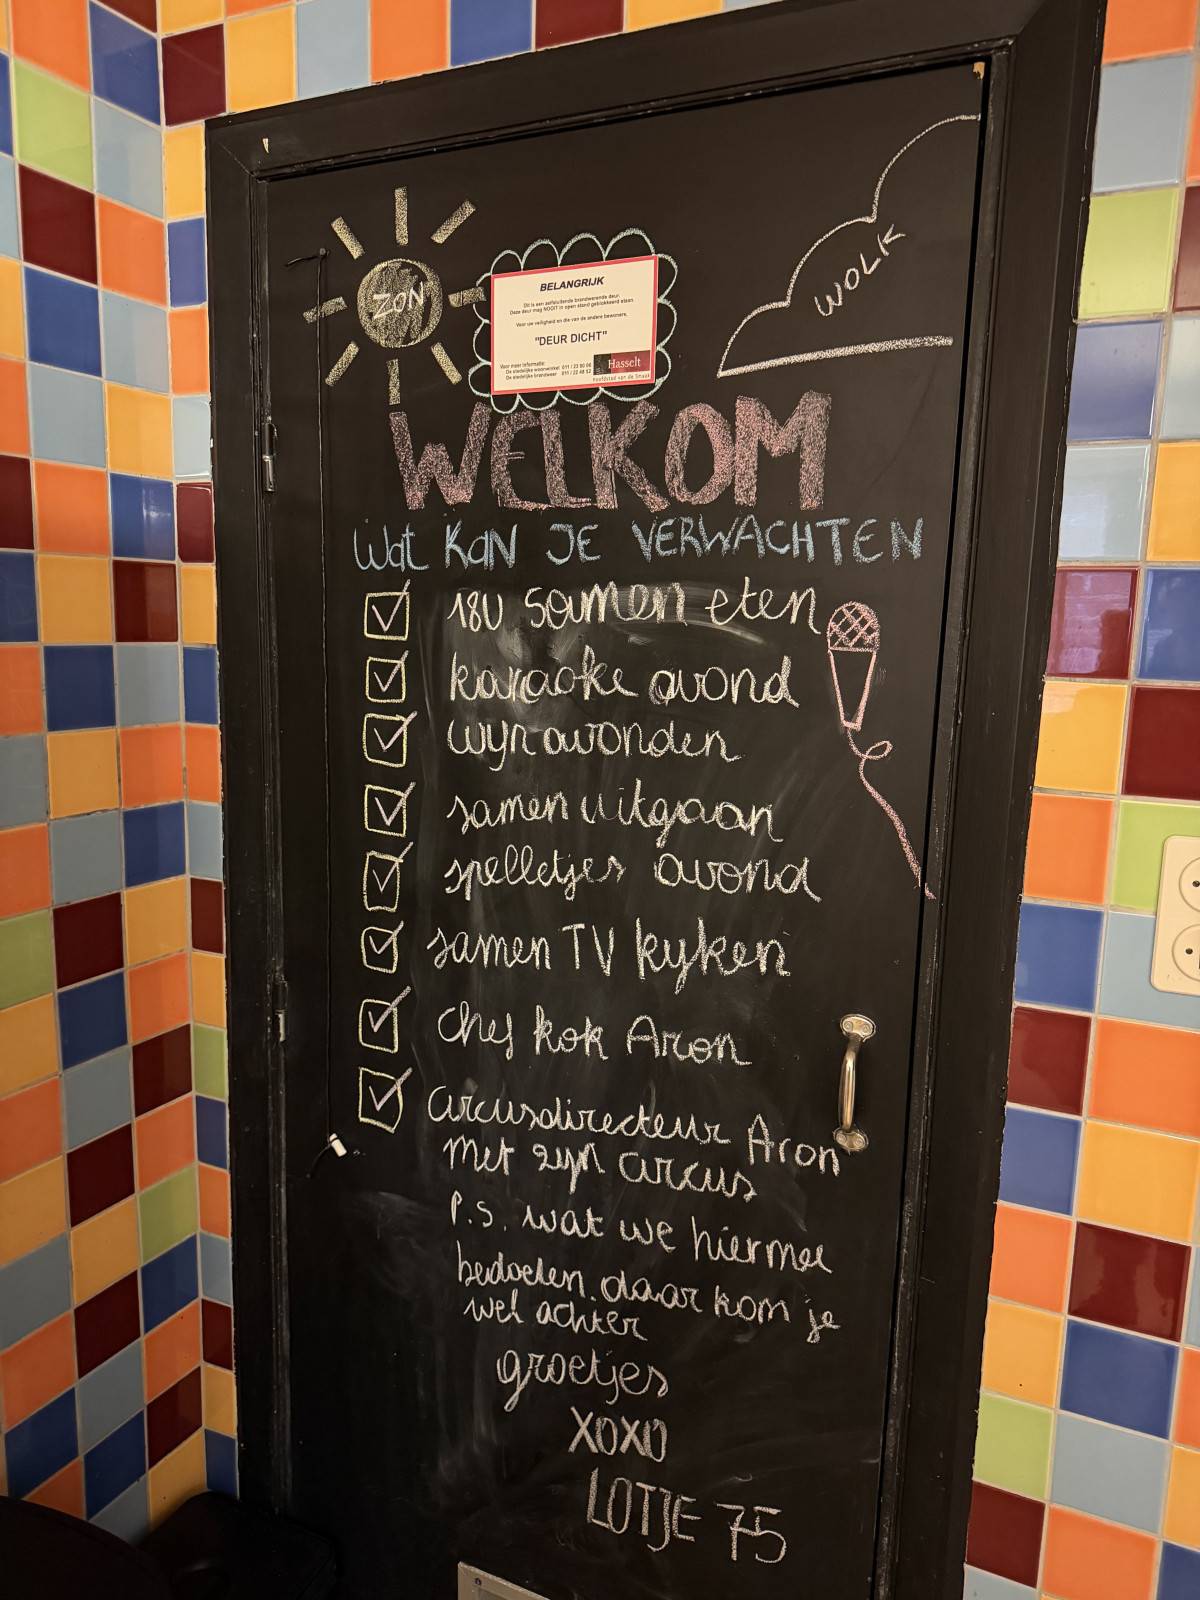 ZON
WOLK
BELANGRIJK
Dit is een zelfsluitende brandwerende deur.
Deze deur mag NOOIT in open stand geblokkeerd staan.
Voor uw veiligheid en die van de andere bewoners,
"DEUR DICHT"
Voor meer informatie:
De stedelijke woonwinkel
De stedelijke brandweer
Hasselt
Hoofdstad van de Smaak
WELKOM
Wat KaN JE VERWACHTEN
18U samen eten
karaoke avond
wijn avonden
samen uitgaan
spelletjes avond
samen TV kijken
chef kok Aron
circusdirecteur Aron
met zijn circus
P.S. wat we hiermee
bedoelen. daar kom je
wel achter
groetjes
XOXO
LOTJE 75